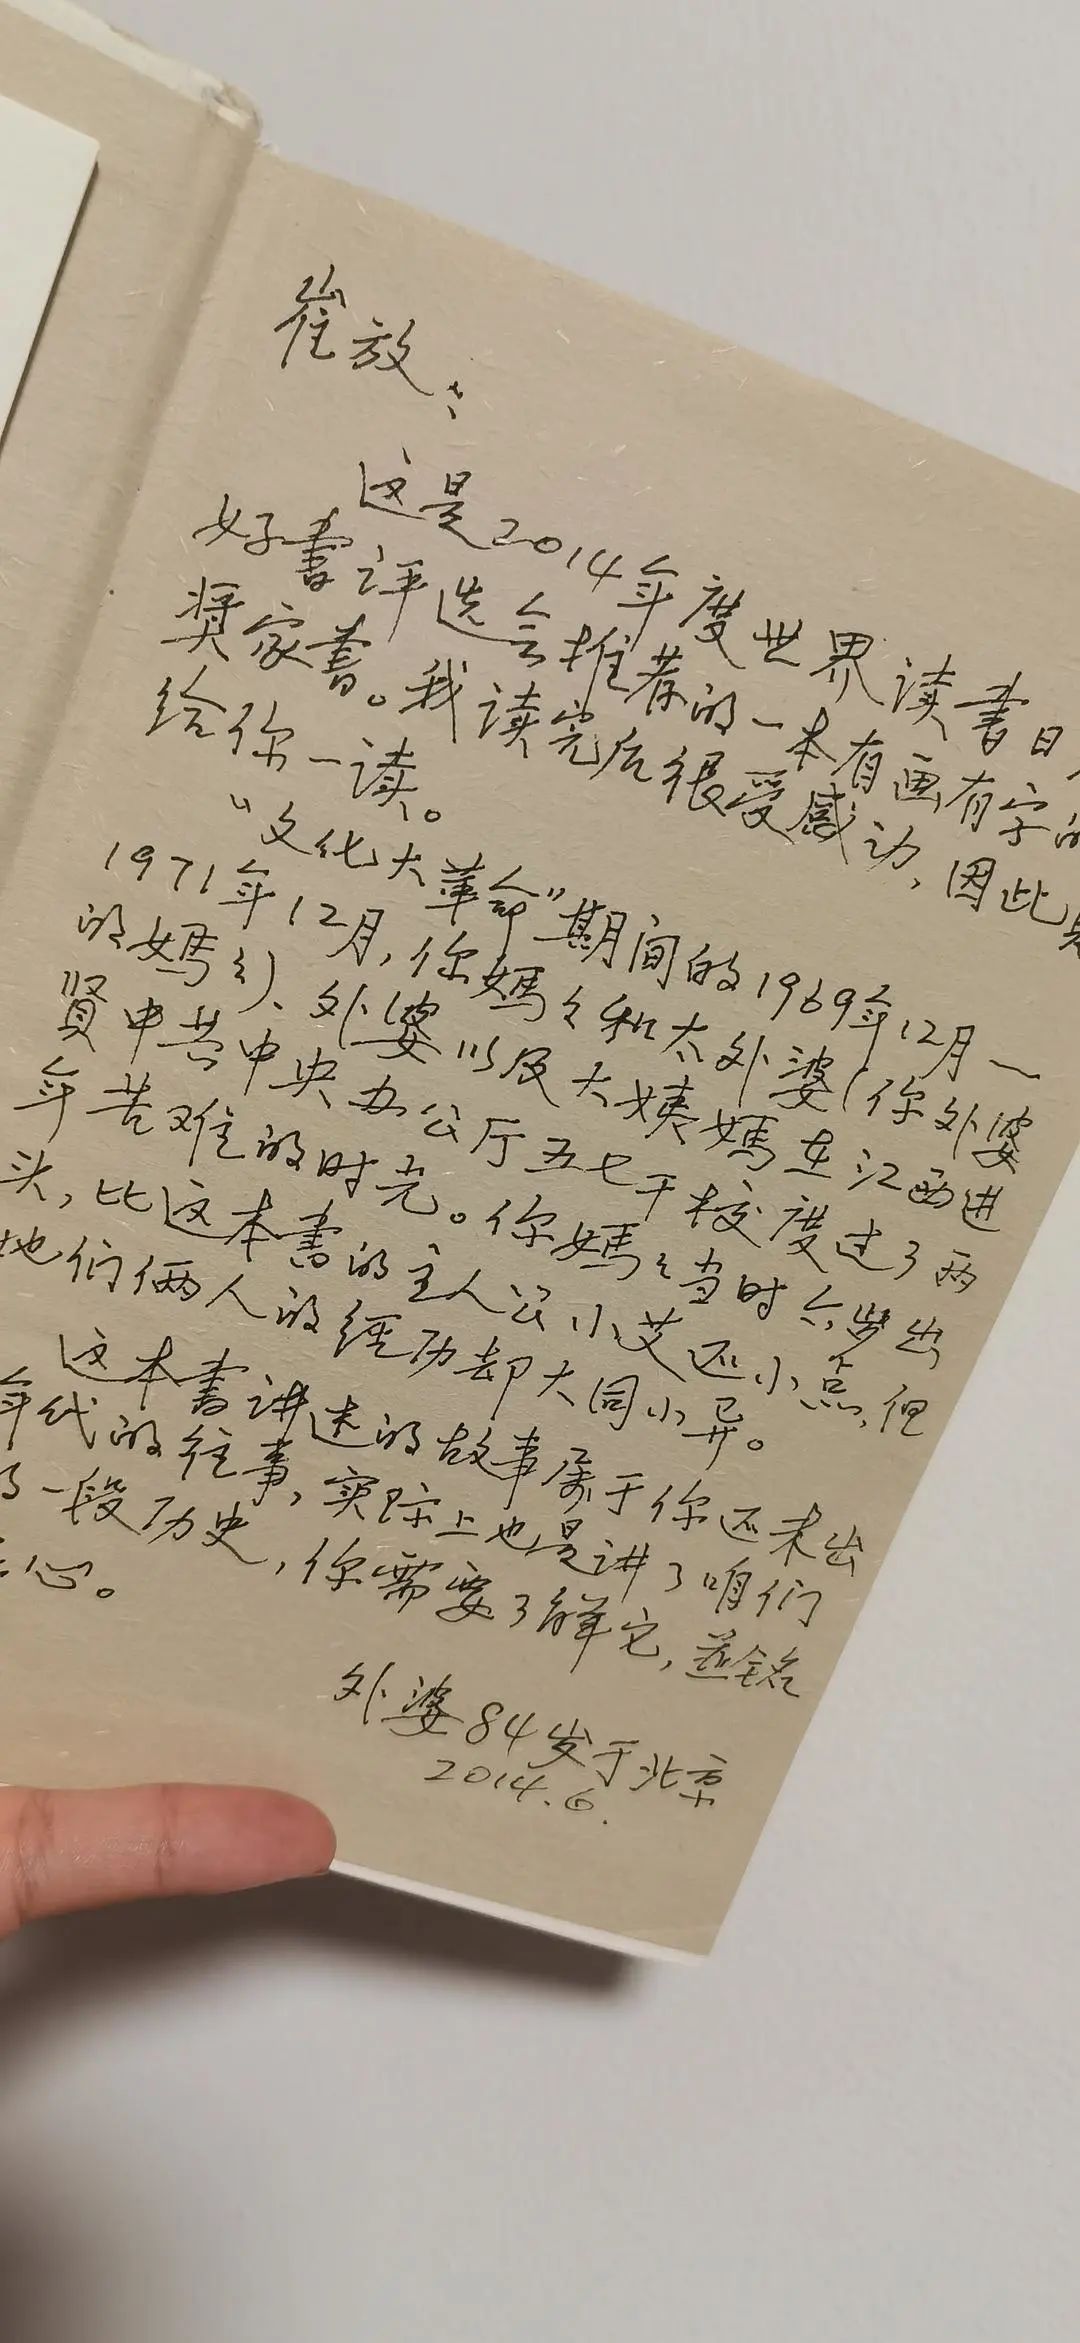 崔放：
这是2014年度世界读书日
好书评选会推荐的一本有画有字的
奖家书。我读完后很受感动，因此
给你一读。
“文化大革命”期间的1969年12月—
1971年12月，你妈々和太外婆（你外婆
的妈々）、外婆以及大姨妈在江西进
贤中共中央办公厅五七干校度过了两
年苦难的时光。你妈々当时六岁出
头，比这本书的主人公小艾还小点，但
她们俩人的经历却大同小异。
这本书讲述的故事属于你还未出
年代的往事，实际上也是讲了咱们
的一段历史，你需要了解它，并铭
心。
外婆84岁于北京
2014.6.